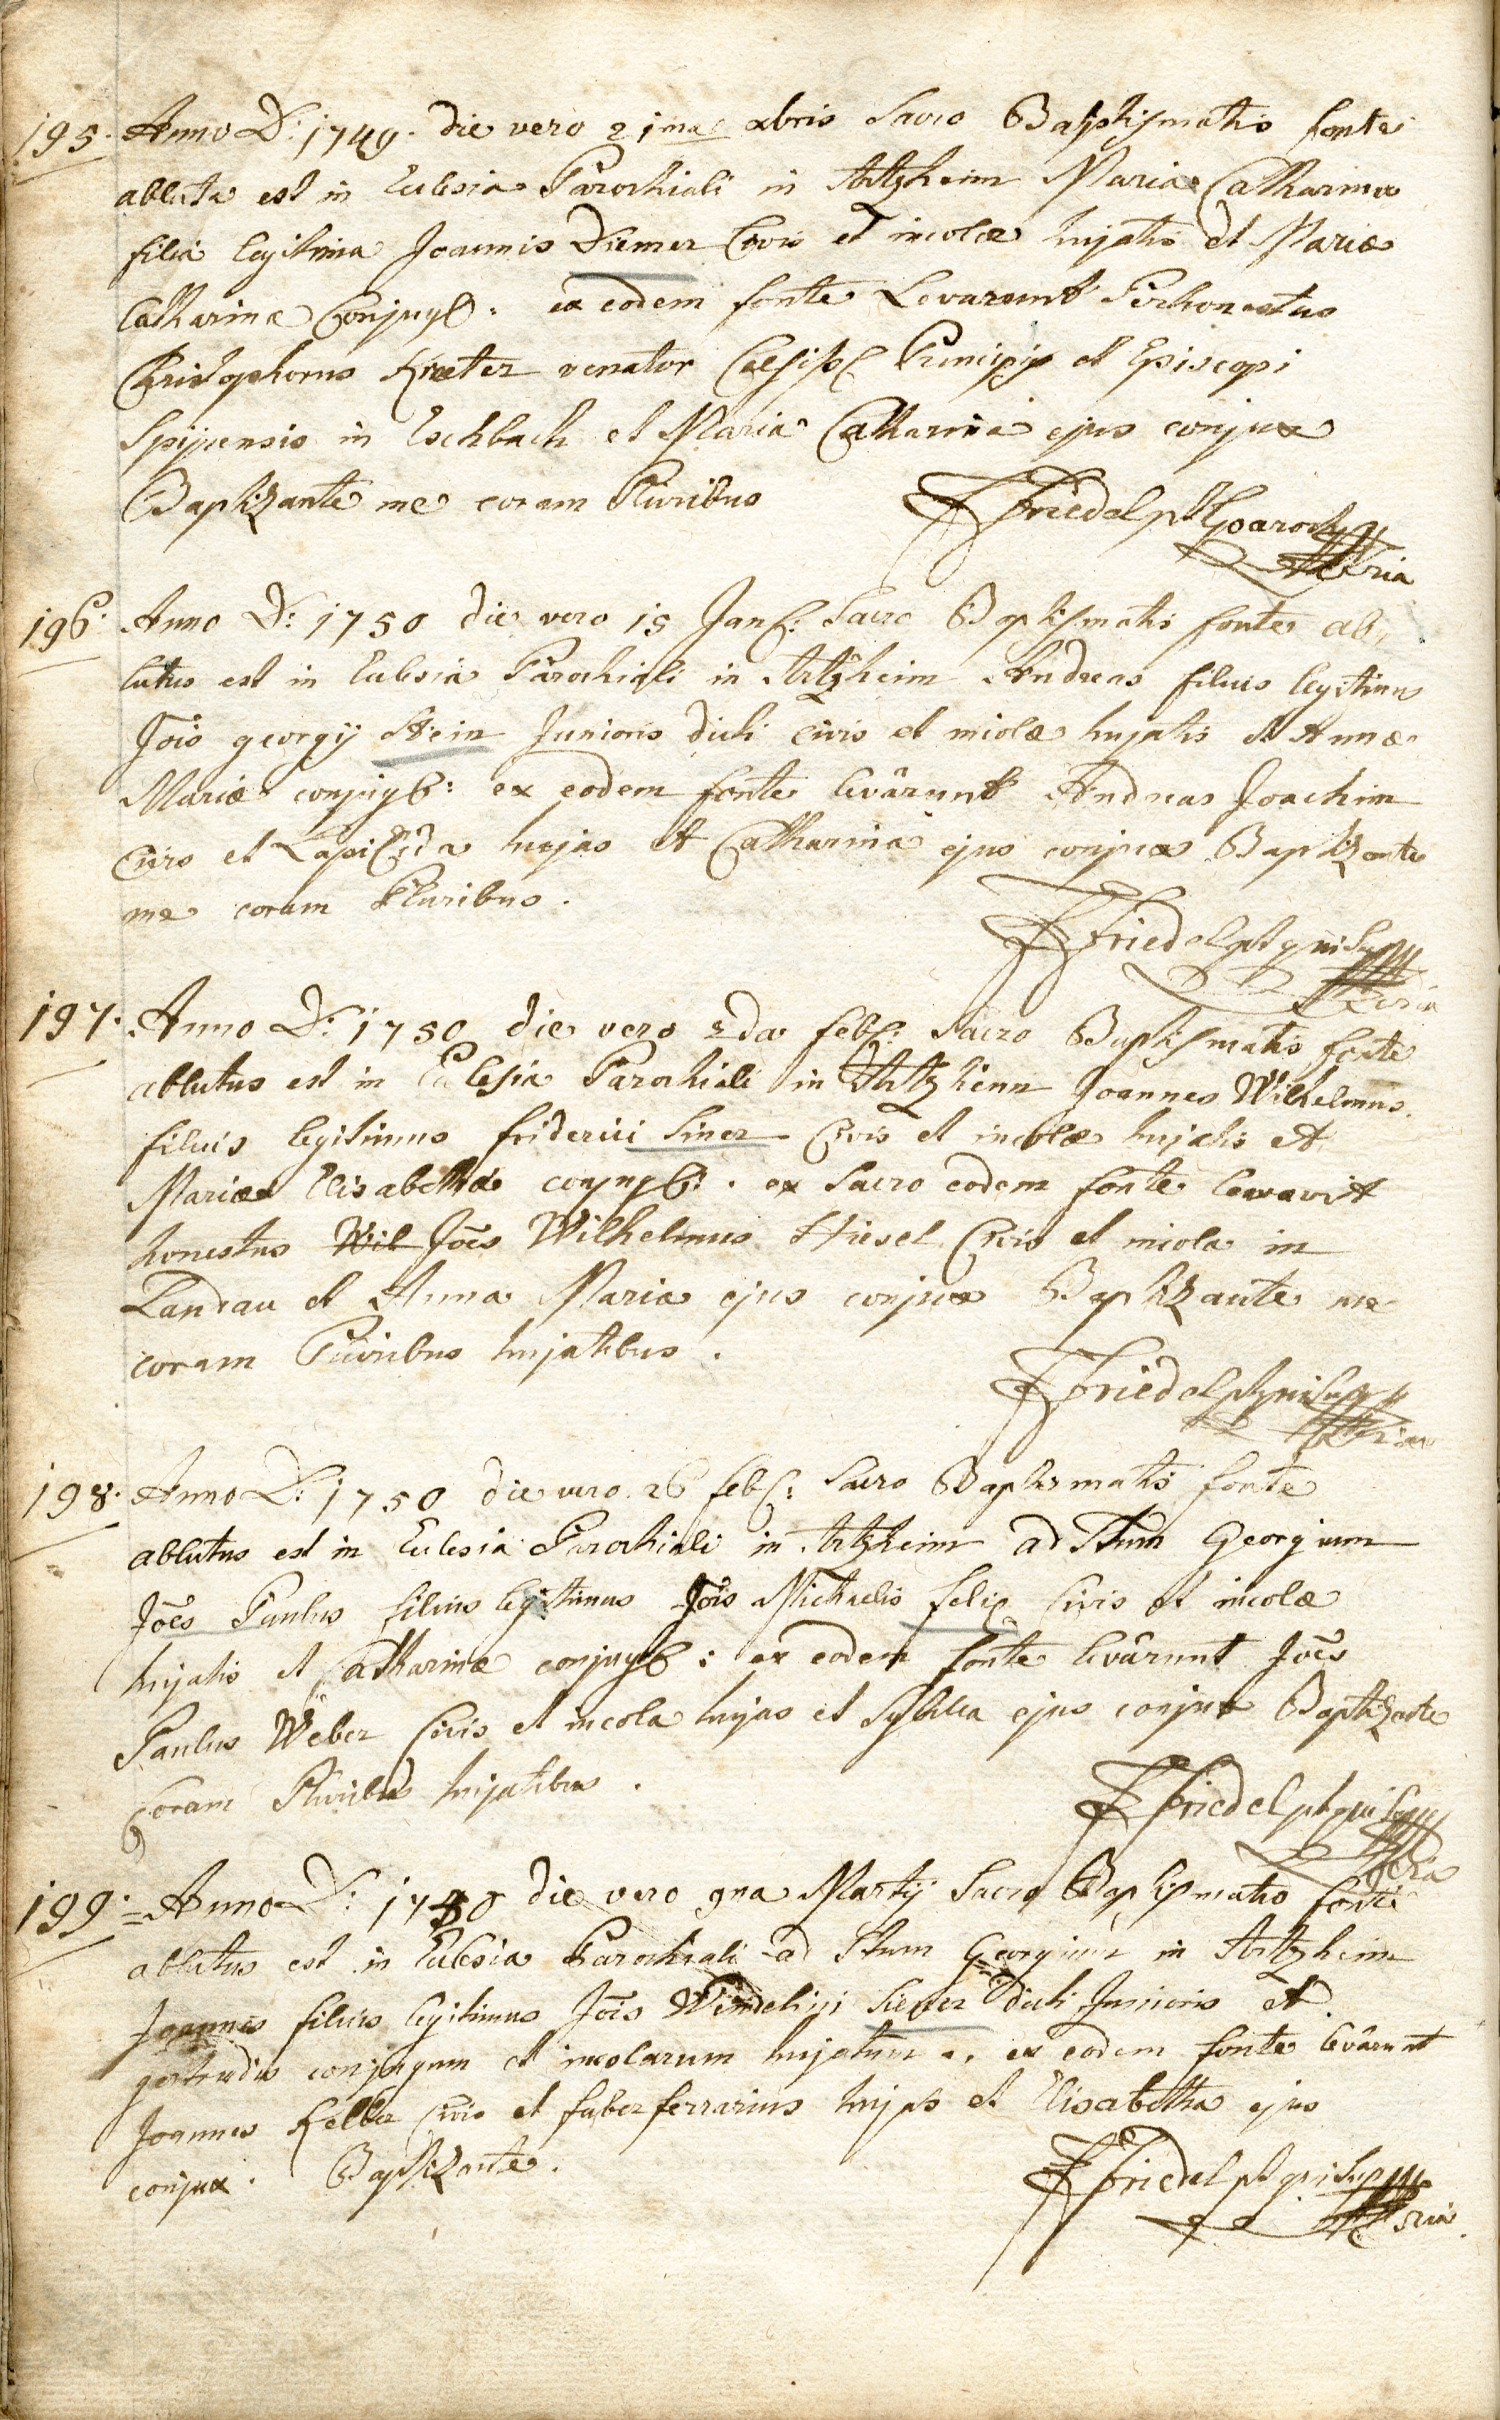 195. Anno D: 1749. die vero 21ma xbris Sacro Baptismatis fonte
abluta est in Eclesia Parochiali in Artzheim Maria Catharina
filia legitima Joannis Diemer Civis et incolæ hujatis et Mariæ
Catharinæ Conjug: ex eodem fonte Levarunt Perhonestus
Christophorus Kneter venator Celsiss Principis et Episcopi
Spirensis in Eschbach et Maria Catharina ejus conjux
Baptizante me coram Pluribus Friedel
196. Anno D: 1750 die vero 15 Jan: Sacro Baptismatis fonte ab,
lutus est in Eclesia Parochiali in Artzheim Andreas filius legitimus
Jois georgij Stein Junioris dicti civis et incolæ hujatis et Annæ
Mariæ conjug: ex eodem fonte levârunt Andreas Joachim
Civis et Lapicida hujas et Catharina ejus conjux Baptizante
me coram Pluribus. Friedel
197. Anno D: 1750 die vero 2da feb: Sacro Baptismatis fonte
ablutus est in Eclesia Parochiali in Artzheim Joannes Wilhelmus
filius legitimus friderici Siner Civis et incolæ hujatis et
Mariæ Elisabethæ conjug: ex Sacro eodem fonte levavit
honestus Wil Joes Wilhelmus Hiesel Civis et incola in
Landau et Anna Maria ejus conjux Baptizante me
coram Pluribus hujatibus. Friedel
198. Anno D: 1750 die vero 26 feb: Sacro Baptismatis fonte
ablutus est in Eclesia Parochiali in Artzheim ad Stum Georgium
Joes Paulus filius legitimus Jois Michaelis felix Civis et incolæ
hujatis et Catharinæ conjug: ex eodem fonte levârunt Joes
Paulus Weber Civis et incola hujas et Sybilla ejus conjux Baptizante
Coram Pluribus hujatibus. Friedel
199. Anno D: 1750 die vero 9na Martij Sacro Baptismatis fonte
ablutus est in Eclesia Parochiali ad Stum Georgium in Artzheim
Joannes filius legitimus Jois Wendelini Siener dicti Junioris et
gertrudis conjugum et incolarum hujatum. ex eodem fonte levârunt
Joannes Keller Civis et faber ferrarius hujas et Elisabetha ejus
conjux. Baptizante. Friedel